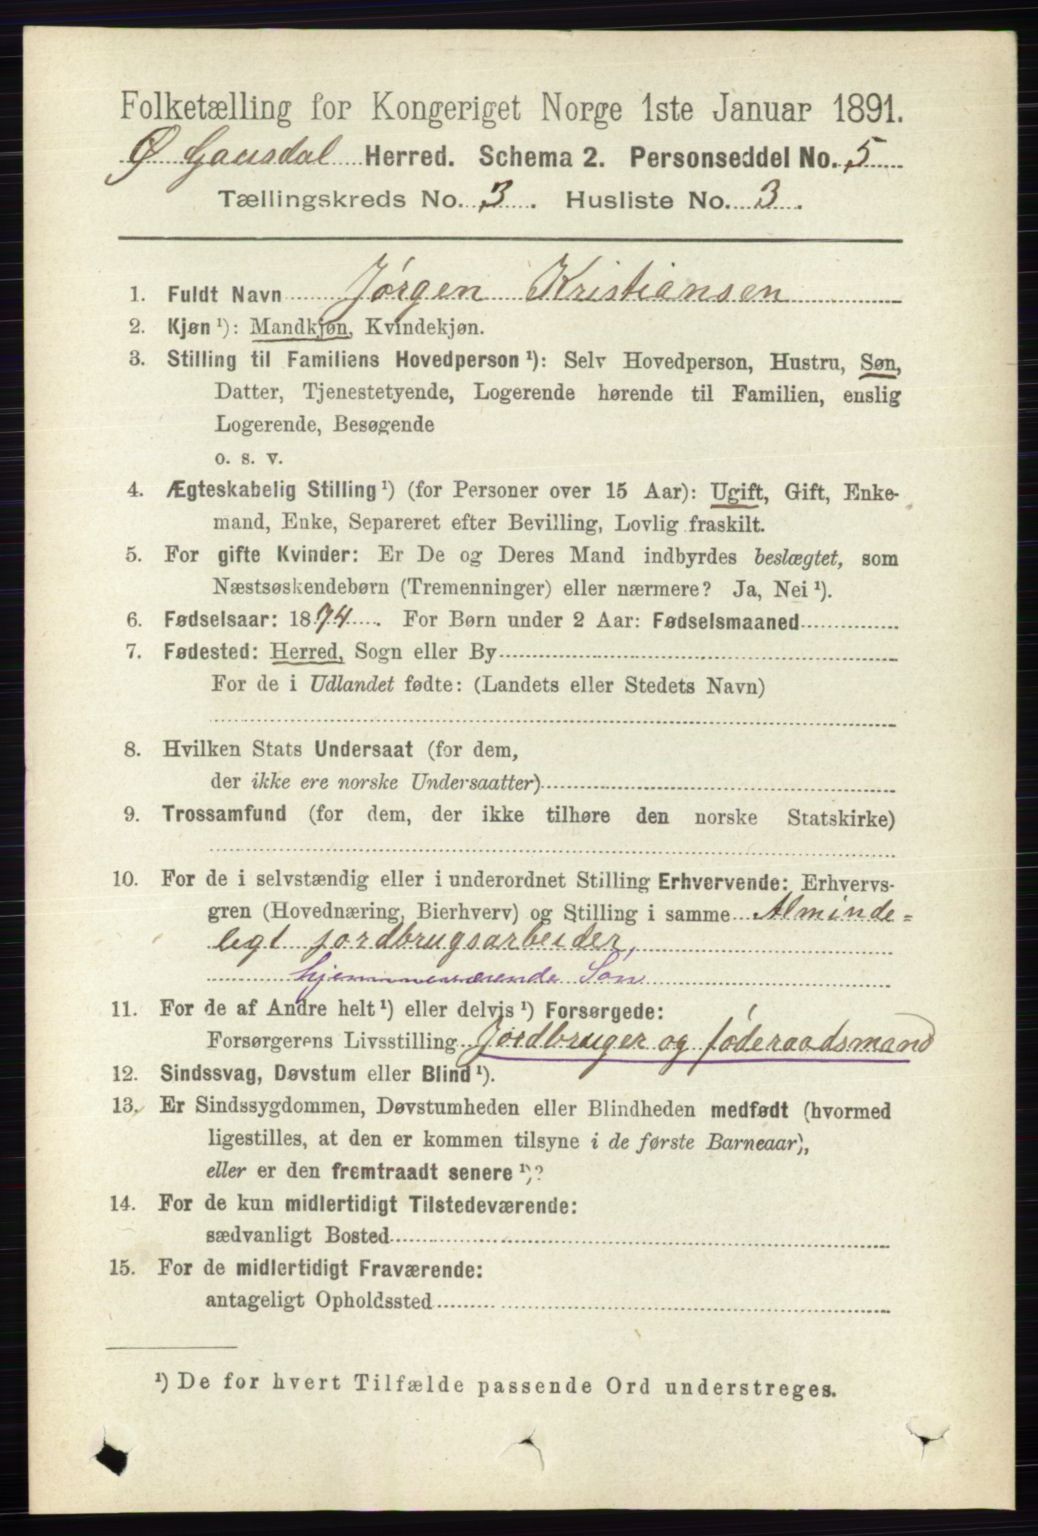 Folketælling for Kongeriget Norge 1ste Januar 1891.
Ø Gausdal Herred. Schema 2. Personseddel No. 5
Tællingskreds No. 3. Husliste No. 3.
1. Fuldt Navn Jørgen Kristiansen
2. Kjøn ¹): Mandkjøn, Kvindekjøn.
3. Stilling til Familiens Hovedperson ¹): Selv Hovedperson, Hustru, Søn,
Datter, Tjenestetyende, Logerende hørende til Familien, enslig
Logerende, Besøgende
o. s. v.
4. Ægteskabelig Stilling ¹) (for Personer over 15 Aar): Ugift, Gift, Enke-
mand, Enke, Separeret efter Bevilling, Lovlig fraskilt.
5. For gifte Kvinder: Er De og Deres Mand indbyrdes beslægtet, som
Næstsøskendebørn (Tremenninger) eller nærmere? Ja, Nei ¹).
6. Fødselsaar: 1874. For Børn under 2 Aar: Fødselsmaaned
7. Fødested: Herred, Sogn eller By
For de i Udlandet fødte: (Landets eller Stedets Navn)
8. Hvilken Stats Undersaat (for dem,
der ikke ere norske Undersaatter)
9. Trossamfund (for dem, der ikke tilhøre den norske Statskirke)
10. For de i selvstændig eller i underordnet Stilling Erhvervende: Erhvervs-
gren (Hovednæring, Bierhverv) og Stilling i samme Alminde=
ligt jordbrugsarbeider,
hjemmeværende Søn
11. For de af Andre helt ¹) eller delvis ¹) Forsørgede:
Forsørgerens Livsstilling Jordbruger og føderaadsmand
12. Sindssvag, Døvstum eller Blind ¹).
13. Er Sindssygdommen, Døvstumheden eller Blindheden medfødt (hvormed
ligestilles, at den er kommen tilsyne i de første Barneaar),
eller er den fremtraadt senere ¹)?
14. For de kun midlertidigt Tilstedeværende:
sædvanligt Bosted
15. For de midlertidigt Fraværende:
antageligt Opholdssted
¹) De for hvert Tilfælde passende Ord understreges.